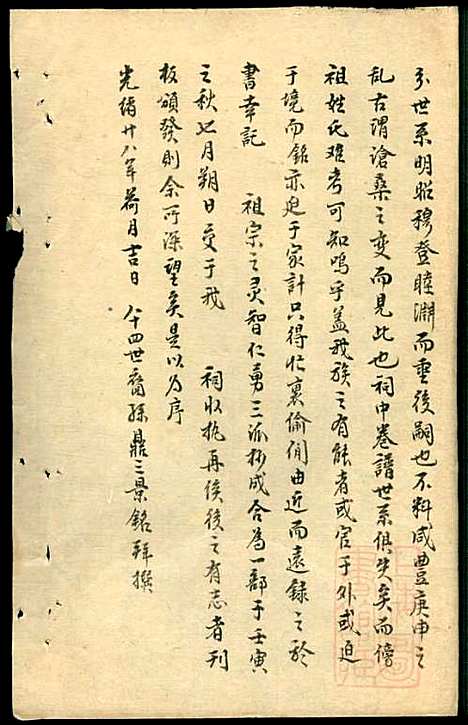 分世系明昭穆登睦淵而重後嗣也不料咸豊庚申之
乱古谓滄桑之变而見此也祠中卷譜世系俱失矣而傍
祖姓氏难考可知嗚乎盖我族之有能者或官于外或迫
于境而銘亦迫于家計只得忙裏偷閒由近而遠録之於
書幸託　祖宗之灵智仁勇三派抄成合為一部于壬寅
之秋七月朔日交于我　祠收执再俟後之有志者刊
板頒發則余所深望矣是以为序
光緒廿八年荷月吉日　八十四世裔孫鼎三景銘拜撰